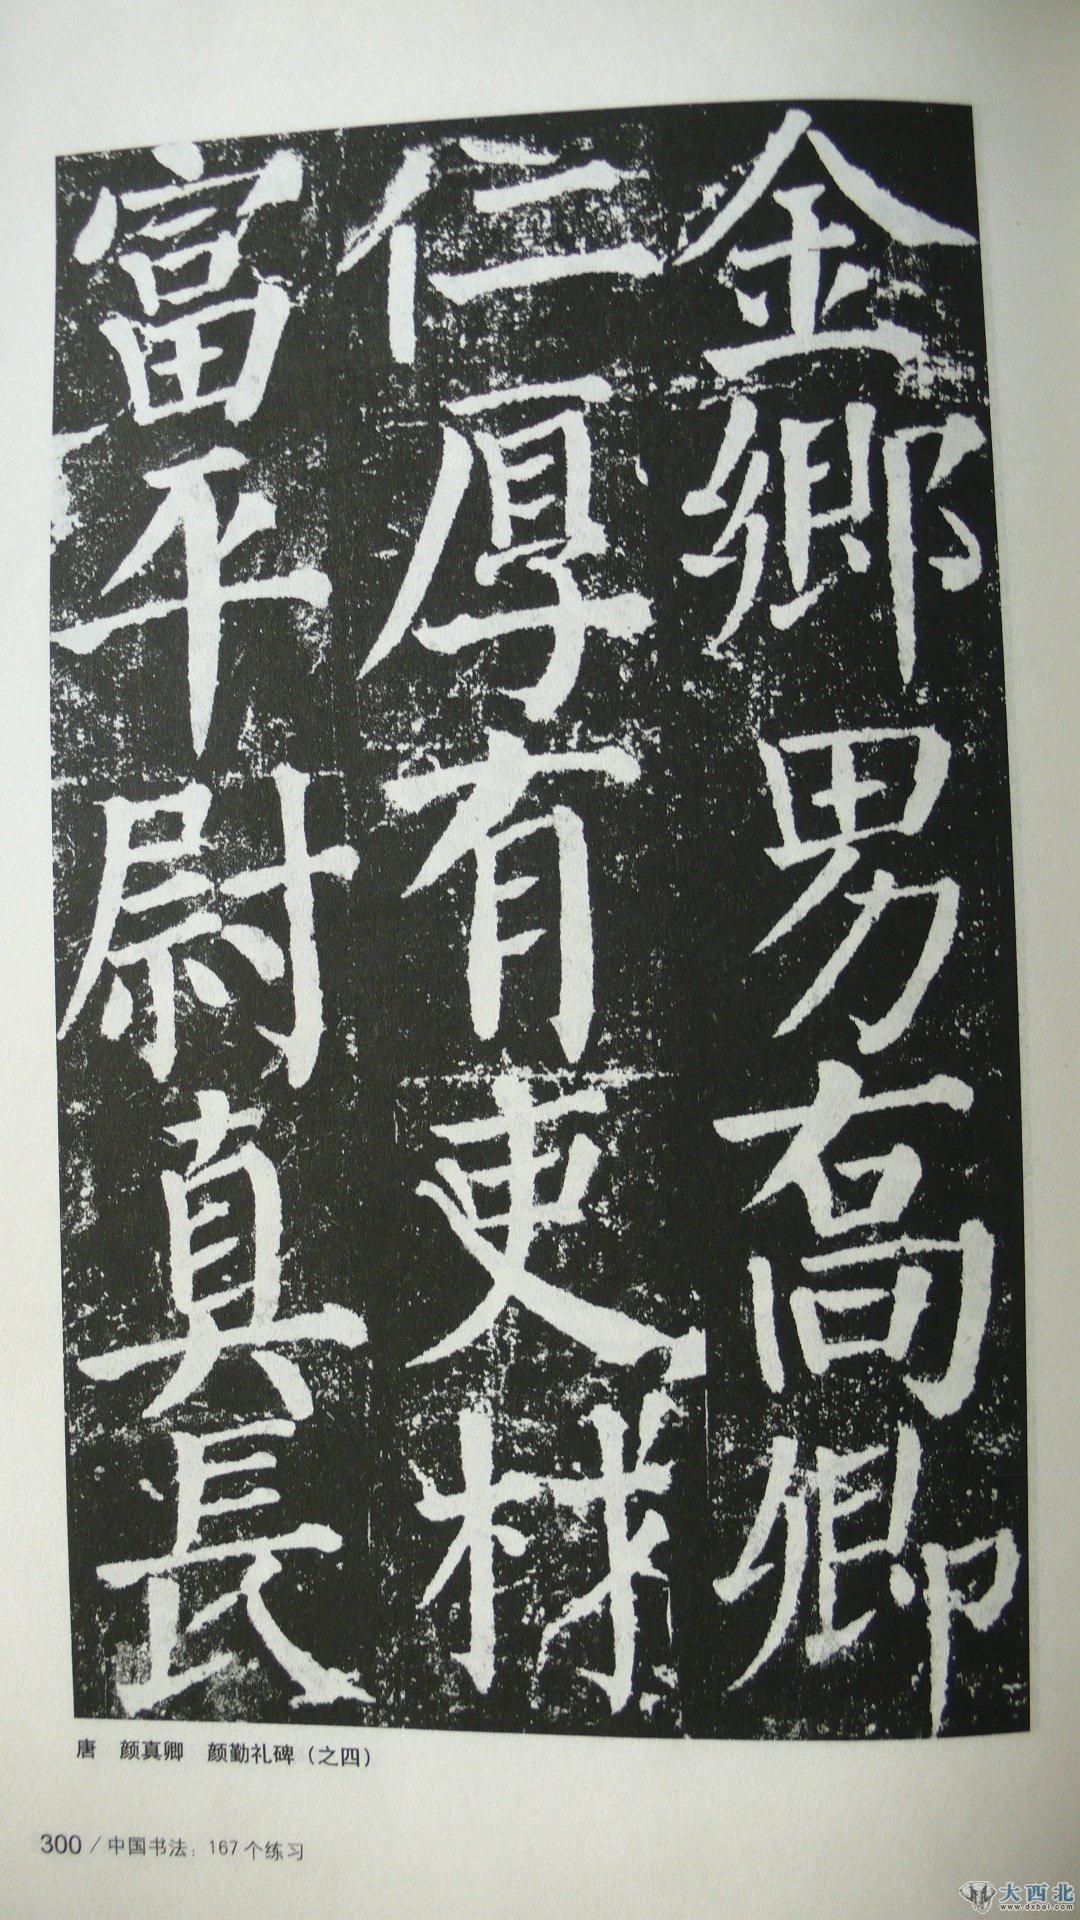 金鄉男高卿
仁厚有吏材
富平尉真長
唐 颜真卿 颜勤礼碑（之四）
300 / 中国书法：167个练习
大西北
www.dxbei.com